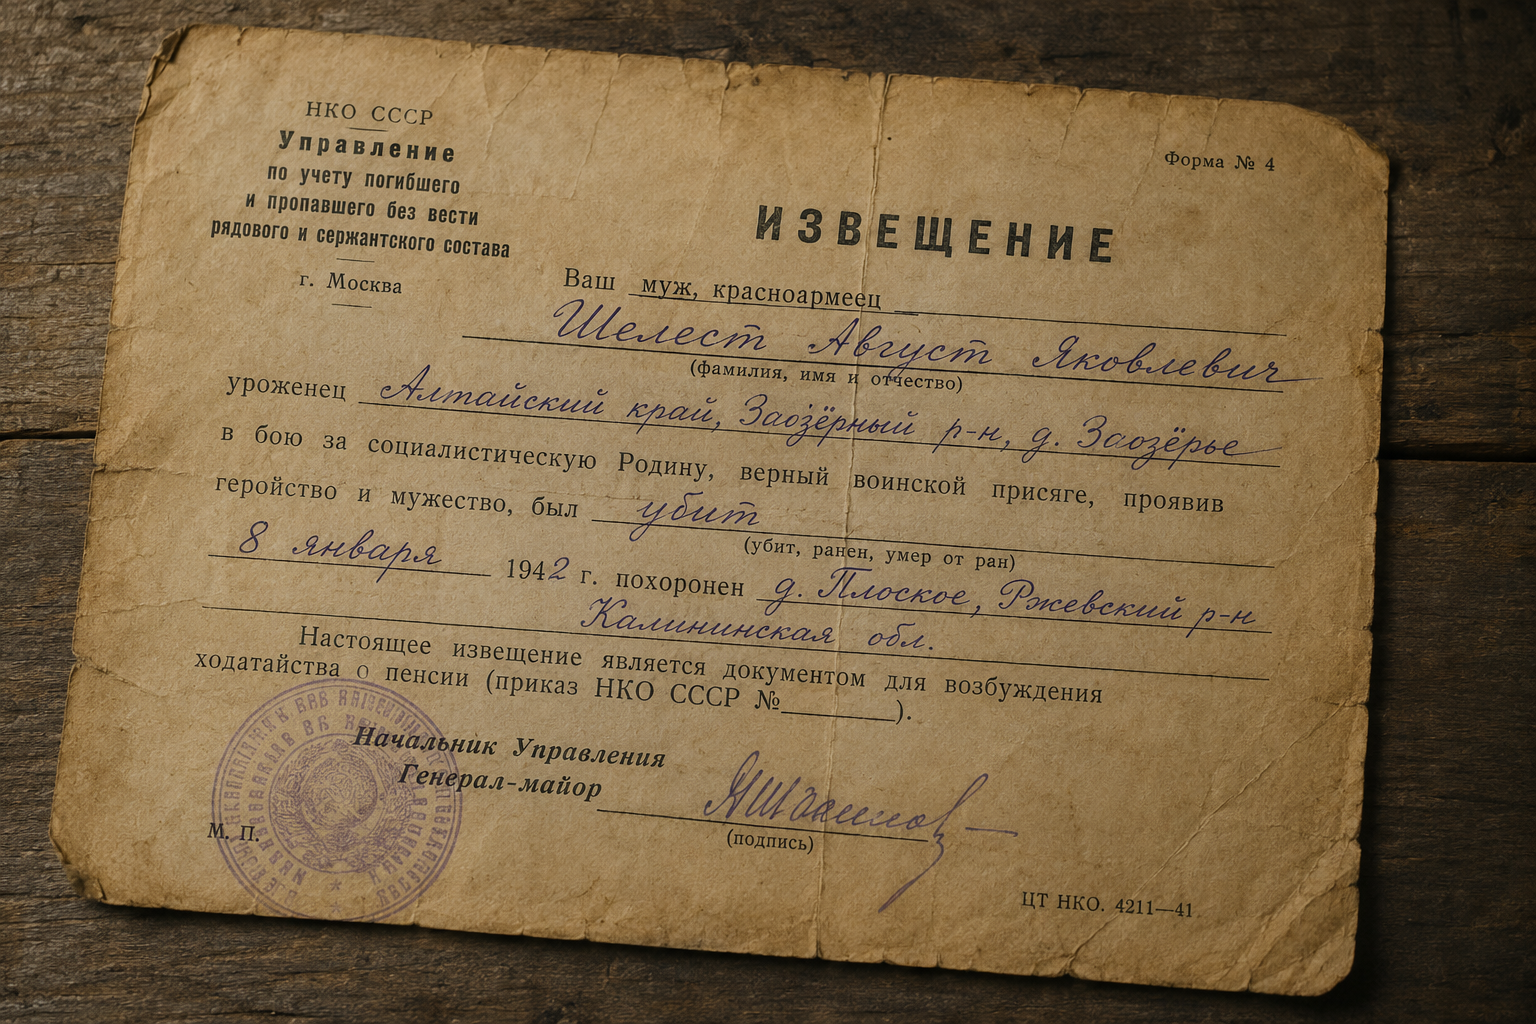 НКО СССР
Управление
по учету погибшего
и пропавшего без вести
рядового и сержантского состава
г. Москва
Форма № 4
ИЗВЕЩЕНИЕ
Ваш муж, красноармеец
Шелест Август Яковлевич
(фамилия, имя и отчество)
уроженец Алтайский край, Заозёрный р-н, д. Заозёрье
в бою за социалистическую Родину, верный воинской присяге, проявив
геройство и мужество, был убит
(убит, ранен, умер от ран)
8 января 1942 г. похоронен д. Плоское, Ржевский р-н
Калининская обл.
Настоящее извещение является документом для возбуждения
ходатайства о пенсии (приказ НКО СССР №______).
Начальник Управления
Генерал-майор
(подпись)
М. П.
ЦТ НКО. 4211—41